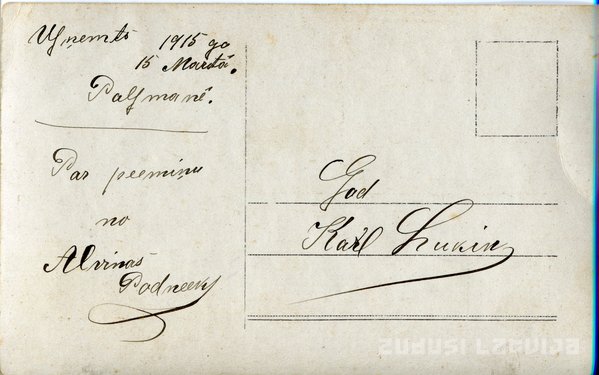 Uzņemts 1915 go
15 Martā.
Palsmanē.
Par peemiņu
no
Alvinas
Podneek
God
Karl Lukin
ZUDUSI LATVIJA